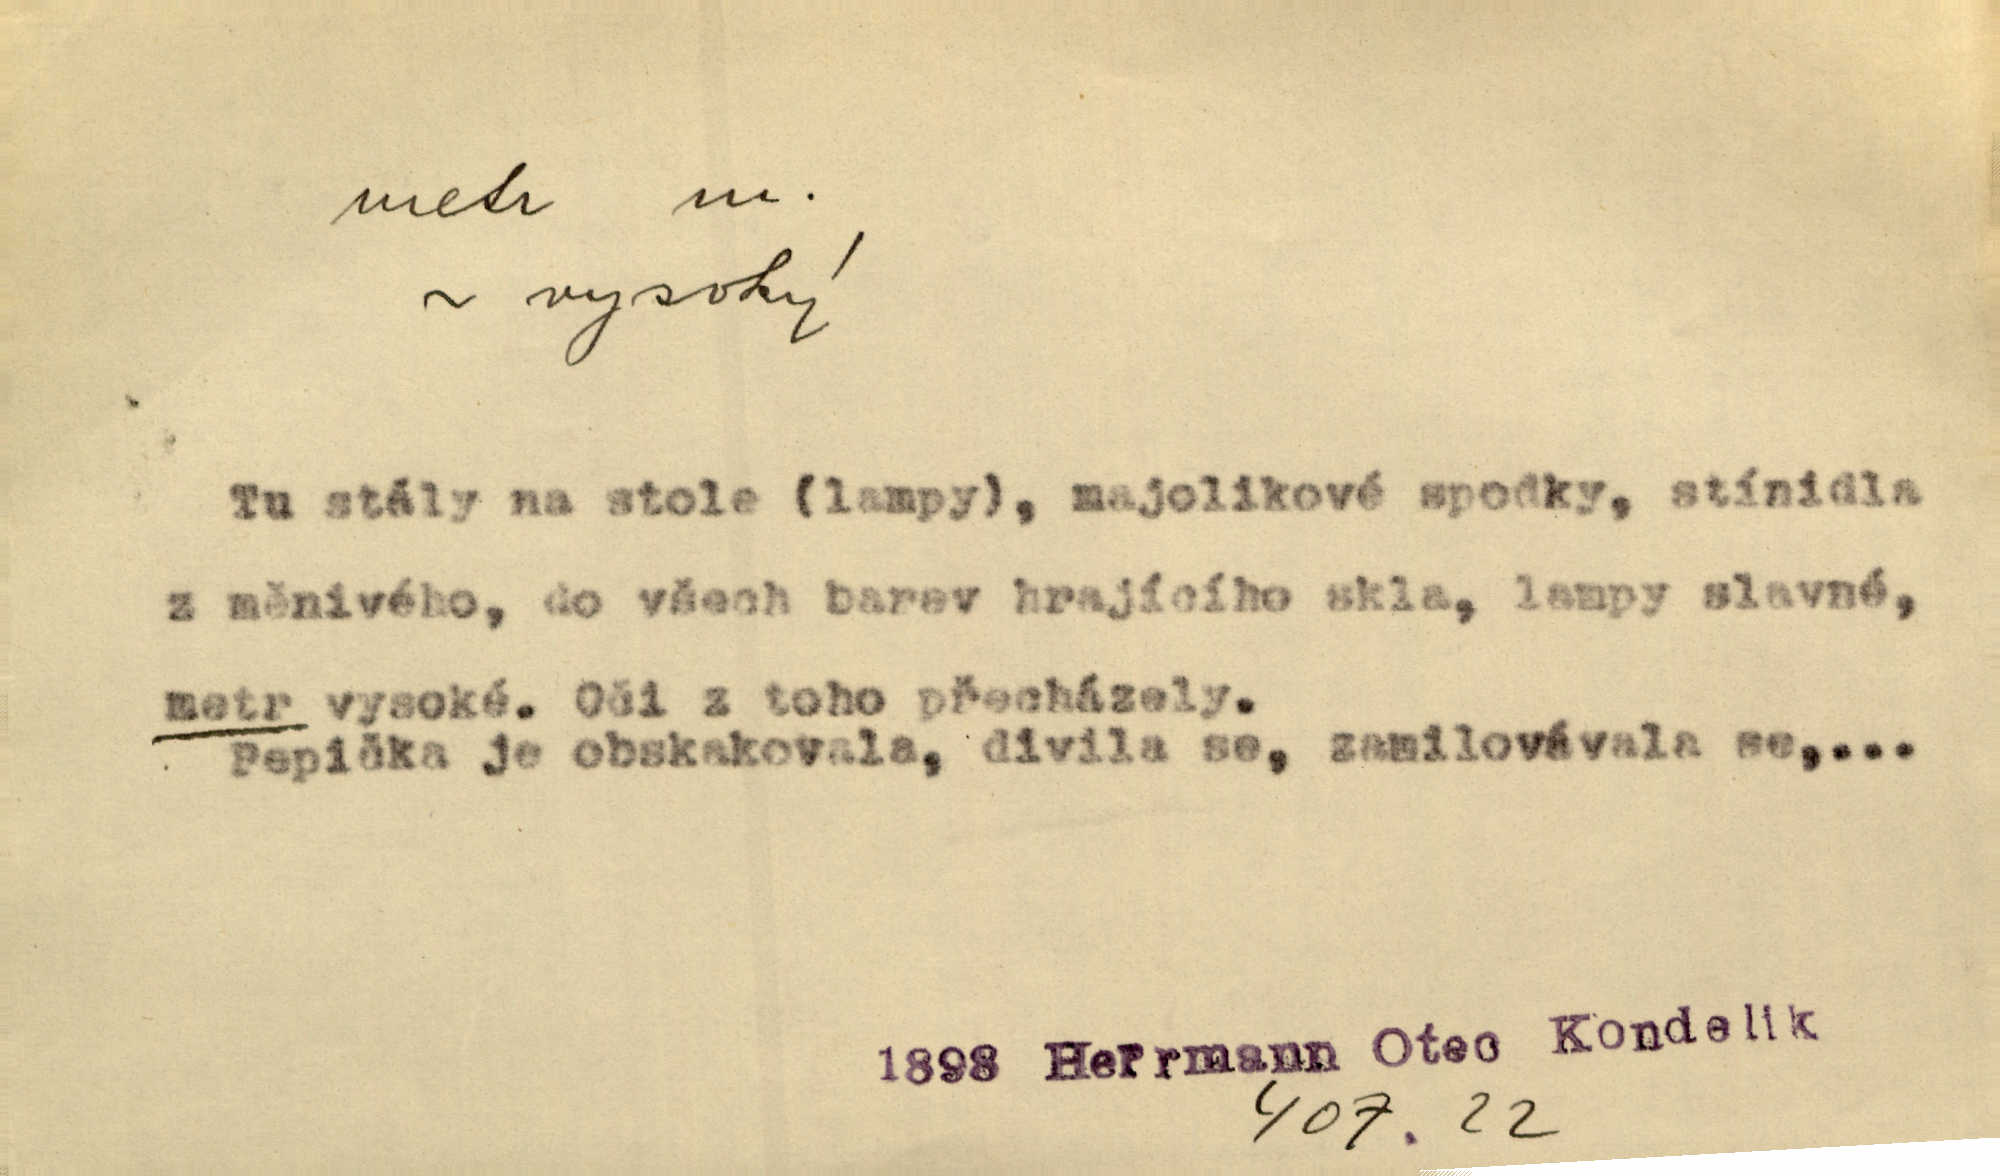 metr m.
~ vysoký
Tu stály na stole (lampy), majolikové spodky, stínidla
z měnivého, do všech barev hrajícího skla, lampy slavné,
metr vysoké. Oči z toho přecházely.
Pepička je obskakovala, divila se, zamilovávala se,...
1898 Herrmann Otec Kondelik
407. 22